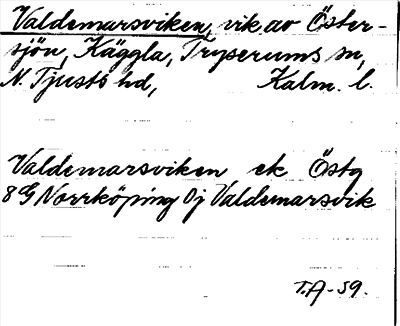 Valdemarsviken, vik av Öster-
sjön, Käggla, Tryserums sn,
N. Tjusts hd, Kalm. l.
Valdemarsviken, ek Östg
8 G Norrköping Oj Valdemarsvik
T.A-59.